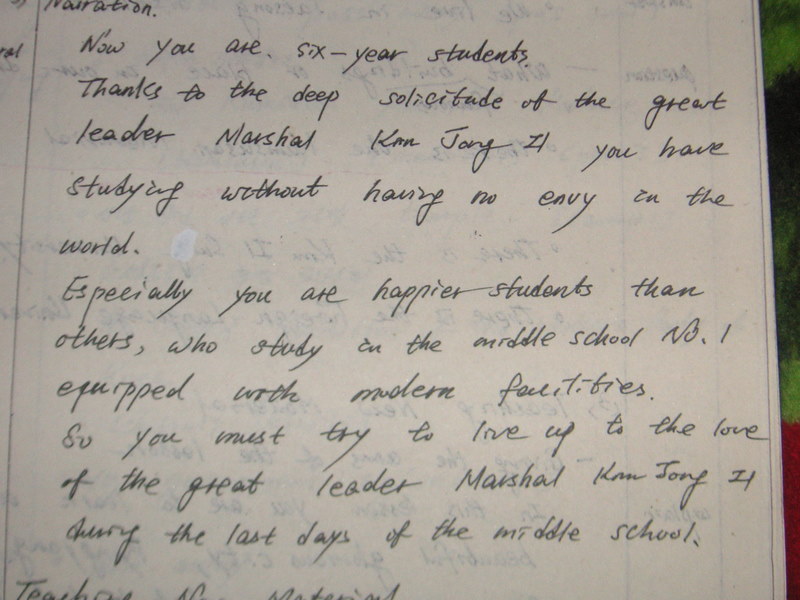 Narration.
Now you are six-year students.
Thanks to the deep solicitude of the great
leader Marshal Kim Jong Il you have
studying without having no envy in the
world.
Especially you are happier students than
others, who study in the middle school No. 1
equipped with modern facilities.
So you must try to live up to the love
of the great leader Marshal Kim Jong Il
during the last days of the middle school.
Teaching New Material